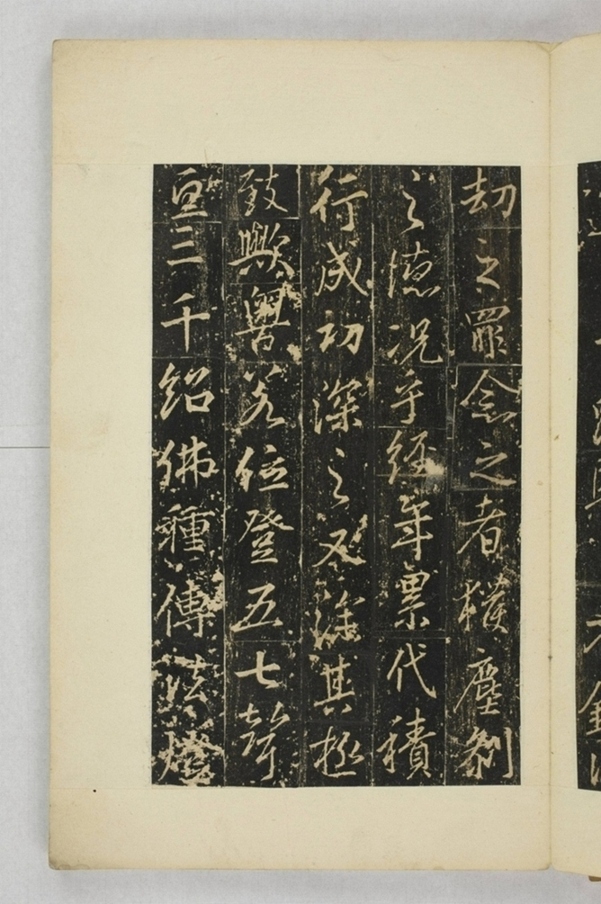 劫之罪念之者獲塵剎
之德况乎經年累代積
行成功深之又深其極
致歟粤若位登五七聲
亘三千紹佛種傳法燈